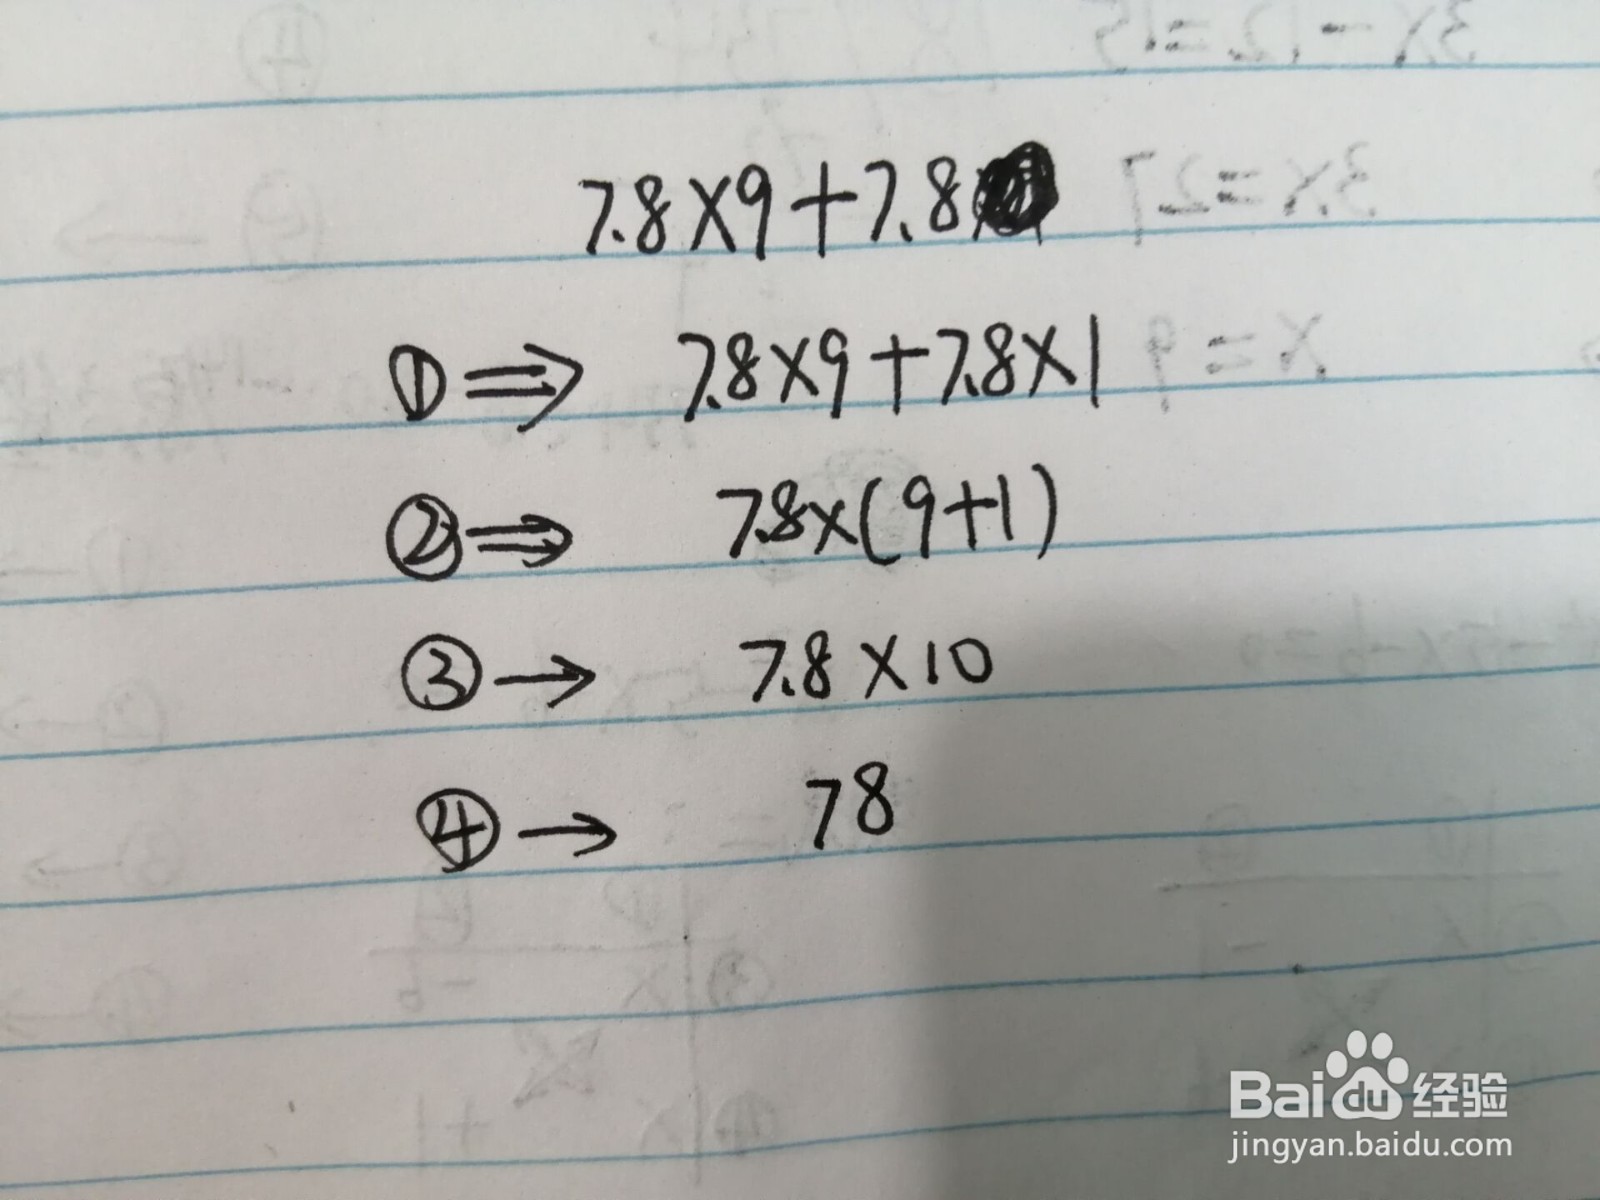 7.8×9+7.8
①⇒ 7.8×9+7.8×1
②⇒ 7.8×(9+1)
③→ 7.8×10
④→ 78
Baidu经验
jingyan.baidu.com